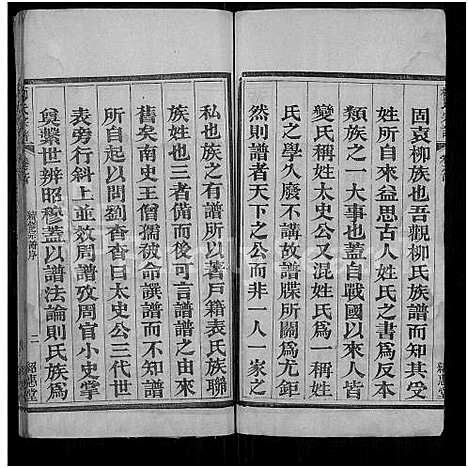 固袁柳族也吾觀柳氏族譜而知其受
姓所自來益思古人姓氏之書爲反本
類族之一大事也蓋自戰國以前姓
變氏稱姓太史公又混姓氏爲一稱姓
氏之學久廢天下譜牒所關爲尤鉅
然則譜者天下之公而非一人一家之
私也族之有譜所以著戶籍表氏族聯
族姓也三者備而後可以爲譜譜所由
舊矣南史王僧孺被命譔譜而不知譜
所自起以問劉杳杳曰太史公三代世
表旁行斜上並效周譜攷周官小史掌
奠繫世辨昭穆蓋以譜法論則氏族爲
二
紹志堂